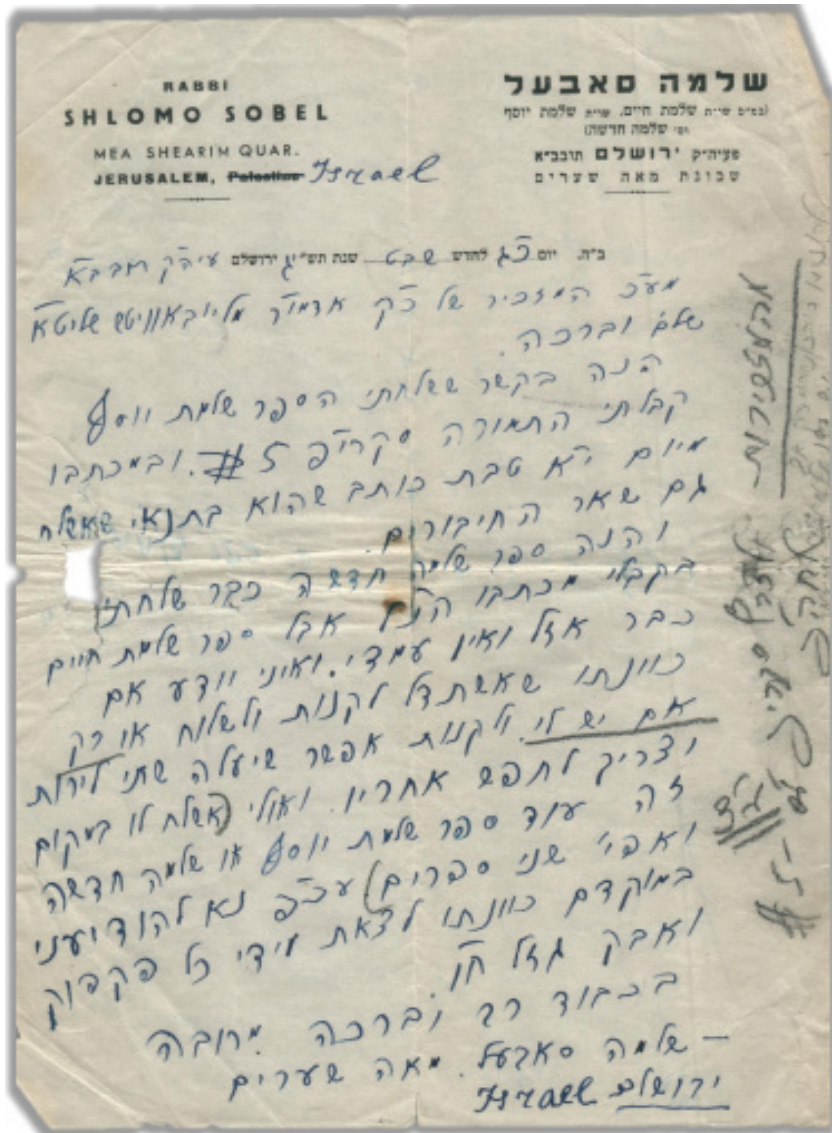 RABBI
SHLOMO SOBEL
MEA SHEARIM QUAR.
JERUSALEM, Palestine Israel
שלמה סאבעל
(במ"ס שו"ת שלמת חיים, שו"ת שלמת יוסף
וס' שלמה חדשה)
פעיה"ק ירושלם תובב"א
שכונת מאה שערים
ב"ה. יום כ"ג לחדש שבט שנת תשי"ג ירושלם עיה"ק תובב"א
מע"כ המזכיר של כ"ק אדמו"ר מליובאוויטש שליט"א
שלם וברכה.
הנה בקשר ששלחתי הספר שלמת יוסף
קבלתי התמורה סקרי"פ 5 $. ובמכתבו
מיום י"א טבת כותב שהוא בתנאי שאשלח
גם שאר החיבורים.
והנה ספר שלמה חדשה כבר שלחתי
בקבלי מכתבו הנ"ל אבל ספר שלמת חיים
כבר אזל ואין עמדי. ואיני יודע אם
כוונתו שאשתדל לקנות ולשלוח או רק
אם יש לי. ולקנות אפשר שיעלה שתי לירות
וצריך לחפש אחריו. ואולי (אשלח לו במקום
זה עוד ספר שלמת יוסף או שלמה חדשה
ואפי' שני ספרים) עכ"פ נא להודיעני
במוקדם כוונתו לצאת מידי כל פקפוק
ואבק גזל ח"ו.
בכבוד רב וברכה מרובה
– שלמה סאבעל. מאה שערים
ירושלם Israel
מהמזכירות
5 $